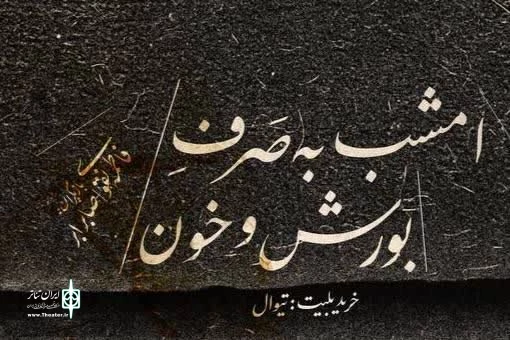 امشب به صَرفِ
بورش و خون
خرید بلیت : تیوال
ایران تئاتر
www.Theater.ir